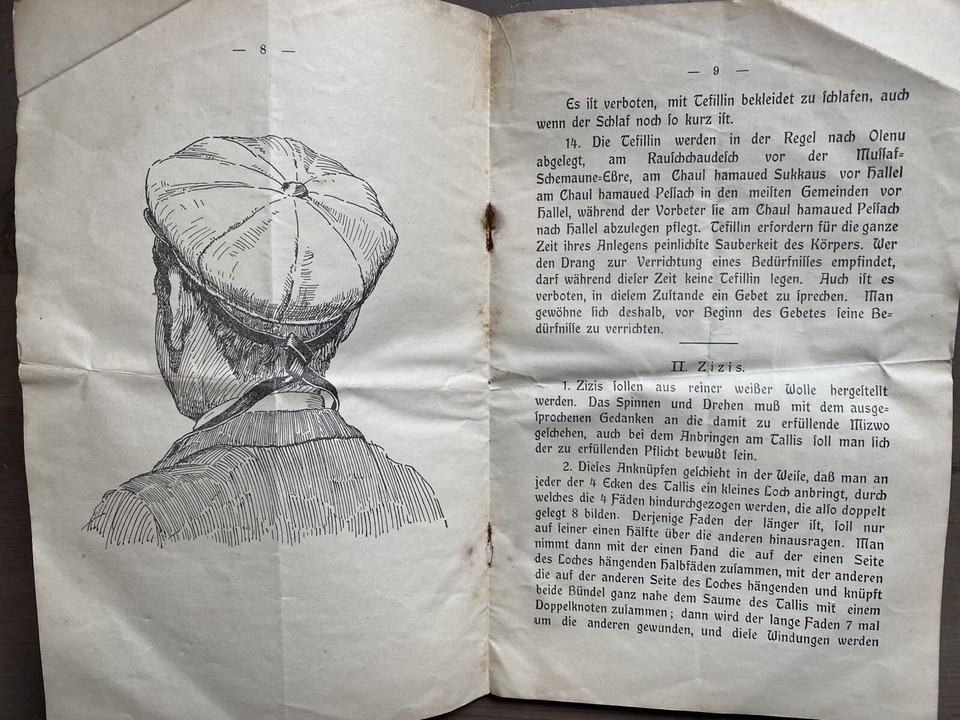 — 8 —
— 9 —
Es ist verboten, mit Tefillin bekleidet zu schlafen, auch
wenn der Schlaf noch so kurz ist.
14. Die Tefillin werden in der Regel nach Olenu
abgelegt, am Rauschchaudesch vor der Mussaf-
Schemaune-Eßre, am Chaul hamaued Sukkaus vor Hallel
am Chaul hamaued Pessach in den meisten Gemeinden vor
Hallel, während der Vorbeter sie am Chaul hamaued Pessach
nach Hallel abzulegen pflegt. Tefillin erfordern für die ganze
Zeit ihres Anlegens peinlichste Sauberkeit des Körpers. Wer
den Drang zur Verrichtung eines Bedürfnisses empfindet,
darf während dieser Zeit keine Tefillin legen. Auch ist es
verboten, in diesem Zustande ein Gebet zu sprechen. Man
gewöhne sich deshalb, vor Beginn des Gebetes seine Be-
dürfnisse zu verrichten.
II. Zizis.
1. Zizis sollen aus reiner weißer Wolle hergestellt
werden. Das Spinnen und Drehen muß mit dem ausge-
sprochenen Gedanken an die damit zu erfüllende Mizwo
geschehen, auch bei dem Anbringen am Tallis soll man sich
der zu erfüllenden Pflicht bewußt sein.
2. Dieses Anknüpfen geschieht in der Weise, daß man an
jeder der 4 Ecken des Tallis ein kleines Loch anbringt, durch
welches die 4 Fäden hindurchgezogen werden, die also doppelt
gelegt 8 bilden. Derjenige Faden der länger ist, soll nur
auf seiner einen Hälfte über die anderen hinausragen. Man
nimmt dann mit der einen Hand die auf der einen Seite
des Loches hängenden Halbfäden zusammen, mit der anderen
die auf der anderen Seite des Loches hängenden und knüpft
beide Bündel ganz nahe dem Saume des Tallis mit einem
Doppelknoten zusammen; dann wird der lange Faden 7 mal
um die anderen gewunden, und diese Windungen werden